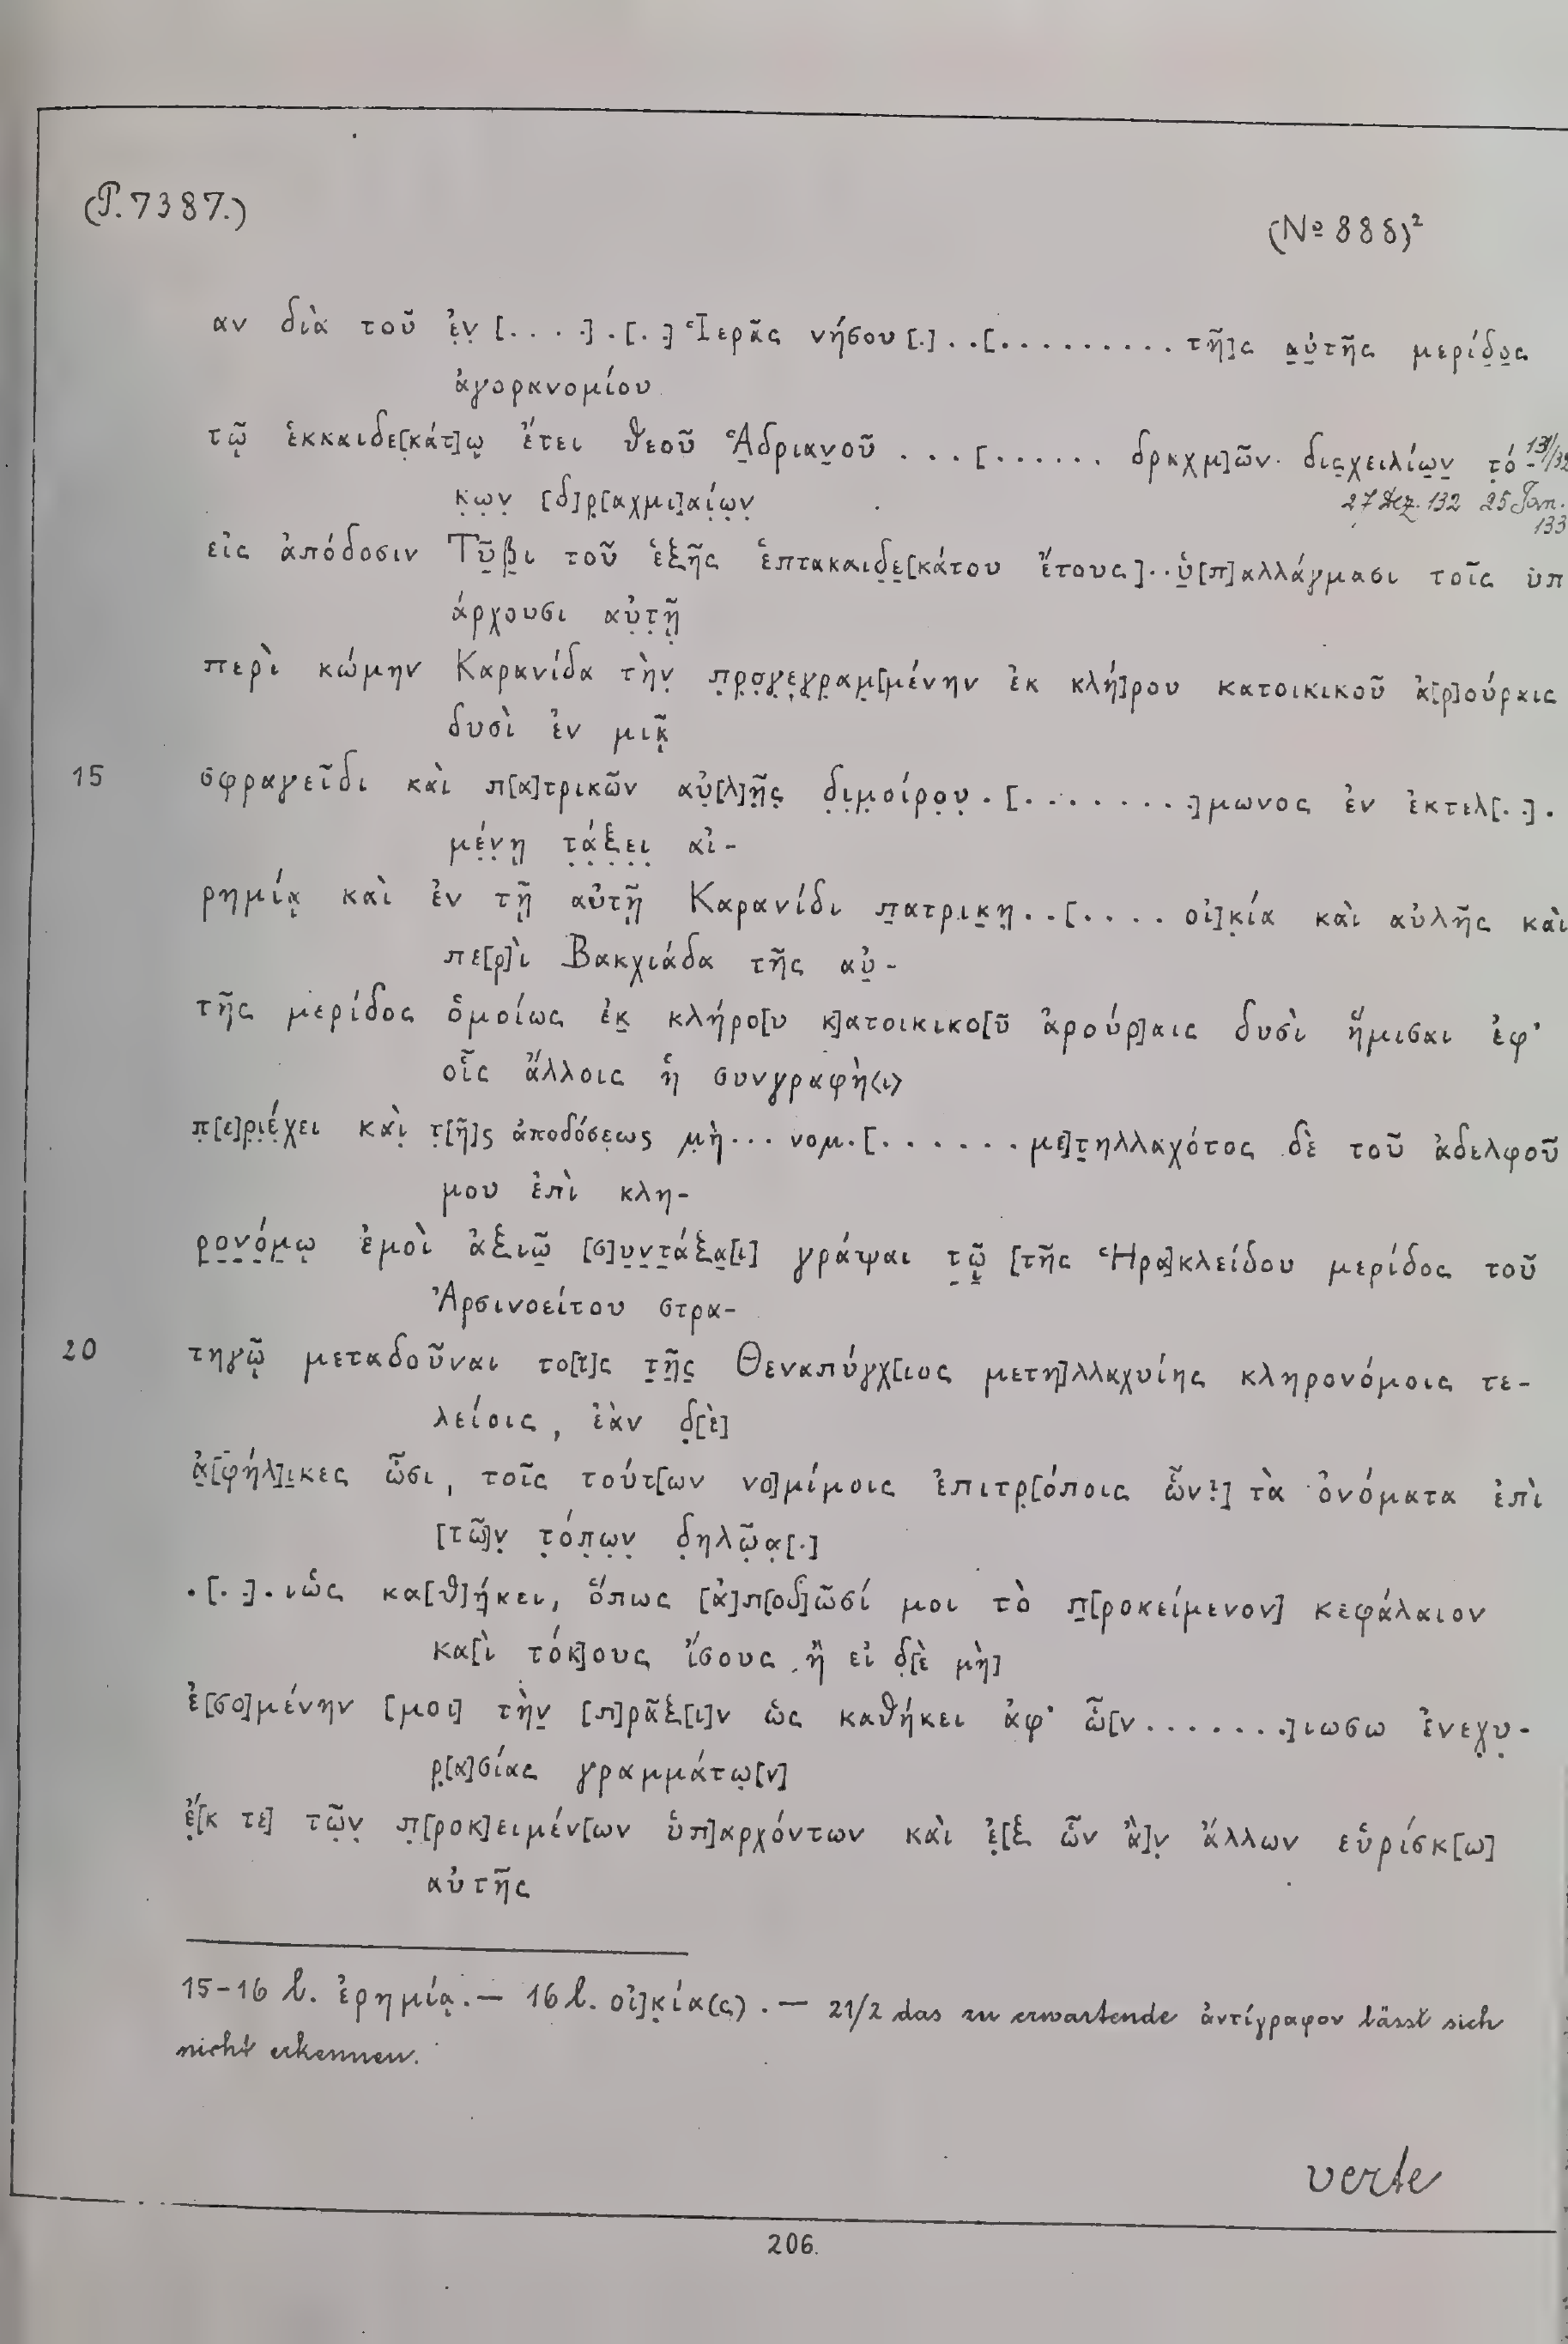 (P. 7387.)
(№ 888)²
αν διὰ τοῦ ἐ̣ν̣ [. . . .] . [. .] Ἱερᾶς νήσου [.] . . [. . . . . . . . . . τῆ]ς α̣ὐ̣τῆς μερίδ̣ο̣ς
ἀγορανομίου
τῷ ἑκκαιδε[κάτ]ῳ ἔτει θεοῦ Ἁ̣δριαν̣οῦ . . . [. . . . . . δραχμ]ῶν δισ̣χειλίω̣ν̣ τ̣ό- 131/32
κ̣ω̣ν̣ [δ]ρ̣[αχμι]αί̣ω̣ν̣
27 Dez. 132 25 Jan.
133
εἰς ἀπόδοσιν Τῦ̣β̣ι τοῦ ἑξῆς ἑπτακαιδ̣ε̣[κάτου ἔτους] . . ὑ̣[π]αλλάγμασι τοῖς ὑπ
άρχουσι αὐ̣τ̣ῇ̣
περὶ κώμην Καρανίδα τὴν̣ π̣ρ̣ο̣γ̣ε̣γ̣ρ̣αμ̣[μένην ἐκ κλή]ρου κατοικικοῦ ἀ[ρ]ούραις
δυσὶ ἐν μιᾷ̣
15 σφραγεῖδι καὶ π[α]τρικῶν αὐ̣[λ]ῆ̣ς̣ δ̣ι̣μ̣οίρ̣ο̣υ̣ . [. . . . . . . .]μωνος ἐν ἐκτελ[. .] .
μέ̣ν̣ῃ τ̣ά̣ξ̣ε̣ι̣ αἰ-
ρημίᾳ καὶ ἐν τῇ αὐτῇ Καρανίδι π̣ατρικ̣η̣ . . [. . . . οἰ]κ̣ία καὶ αὐλῆς καὶ
πε[ρ]ὶ Βακχιάδα τῆς αὐ̣-
τῆς μερίδος ὁμοίως ἐκ̣ κλήρο[υ κ]ατοικικο[ῦ ἀρούρ]αις δυσὶ ἥμισαι ἐφ'
οἷς ἄλλοις ἡ συνγραφὴ⟨ι⟩
π̣[ε]ρ̣ι̣έ̣χει καὶ̣ τ̣[ῆ]ς ἀποδόσε̣ως μ̣ὴ . . . νομ . [. . . . . . . με]τ̣ηλλαχότος δὲ τοῦ ἀδελφοῦ
μου ἐπὶ κλη-
ρ̣ο̣ν̣ό̣μ̣ῳ ἐμοὶ ἀξιῶ̣ [σ]υ̣ν̣τ̣άξα̣[ι] γράψαι τ̣ῷ̣ [τῆς Ἡρα]κλείδου μερίδος τοῦ
Ἀρσινοείτου στρα-
20 τηγῷ μεταδοῦναι το[ῖ]ς τ̣ῆ̣ς̣ Θεναπύγχ[ιος μετη]λλαχυίης κληρονόμοις τε-
λείοις, ἐὰν δ̣[ὲ]
ἀ̣[φήλ]ι̣κες ὦσι, τοῖς τούτ[ων νο]μίμοις ἐπιτρ̣[όποις ὧν?] τὰ ὀνόματα ἐπὶ
[τῶ]ν̣ τ̣ό̣π̣ω̣ν̣ δ̣ηλῶ̣α̣[.]
. [. .] . ιὡς κα[θ]ή̣κει, ὅπως [ἀ]π[οδ]ῶσί μοι τὸ π̣[ροκείμενον] κεφάλαιον
κα[ὶ τόκ]ους ἴσους ἢ εἰ δ̣[ὲ μὴ]
ἐ[σο]μένην [μοι] τὴν̣ [π]ρᾶξ[ι]ν ὡς καθήκει ἀφ' ὧ[ν . . . . . . . .]ιωσω ἐνεχ̣υ̣-
ρ̣[α]σίας γραμμάτω̣[ν]
ἔ̣[κ τε] τῶ̣ν̣ π̣[ροκ]ειμέν[ων ὑπ]αρχόντων καὶ ἐ̣[ξ ὧν ἂ]ν̣ ἄλλων εὑρίσκ[ω]
αὐτῆς
15-16 l. ἐρημίᾳ. — 16 l. οἰ]κ̣ία(ς). — 21/2 das zu erwartende ἀντίγραφον lässt sich
nicht erkennen.
verte
206.